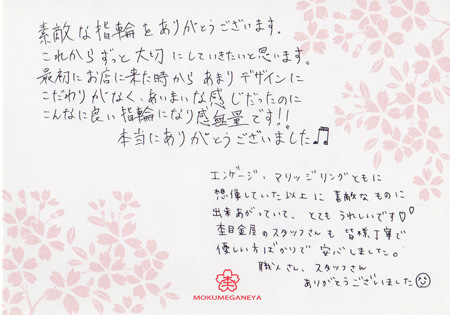 素敵な指輪をありがとうございます。
これからずっと大切にしていきたいと思います。
最初にお店に来た時からあまりデザインに
こだわりがなく、あいまいな感じだったのに
こんなに良い指輪になり感無量です!!
本当にありがとうございました♫
エンゲージ、マリッジリングともに
想像していた以上に素敵なものに
出来あがっていて、とてもうれしいです♡♡
杢目金屋のスタッフさんも皆様丁寧で
優しい方ばかりで安心しました。
職人さん、スタッフさん
ありがとうございました☺
MOKUMEGANEYA